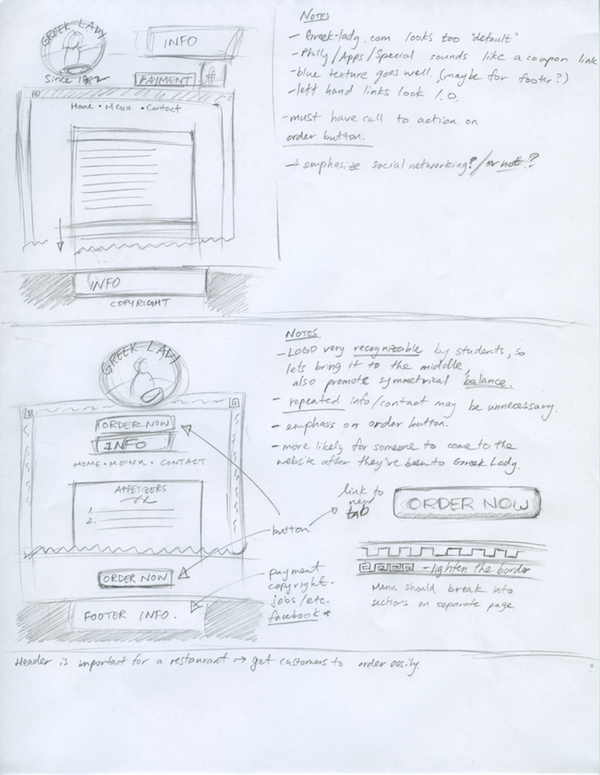 GREEK LADY
Since 1982
INFO
PAYMENT
Home • Menu • Contact
INFO
COPYRIGHT
NOTES
- Greek-lady.com looks too "default"
- Philly/Apps/Special sounds like a coupon link
- blue texture goes well. (maybe for footer?)
- left hand links look 1.0.
- must have call to action on
order button.
- emphasize social networking? / or not?
GREEK LADY
ORDER NOW
INFO
HOME • MENU • CONTACT
APPETIZERS
1.
2.
ORDER NOW
FOOTER INFO.
NOTES
- LOGO very recognizeable by students, so
lets bring it to the middle,
also promote symmetrical balance.
- repeated info/contact may be unnecessary.
- emphasis on order button.
- more likely for someone to come to the
website after they've been to Greek Lady.
link to
new
tab
button
ORDER NOW
- lighten the border
Menu should break into
sections on separate page
payment
copyright.
jobs/etc.
facebook*
Header is important for a restaurant → get customers to order easily.